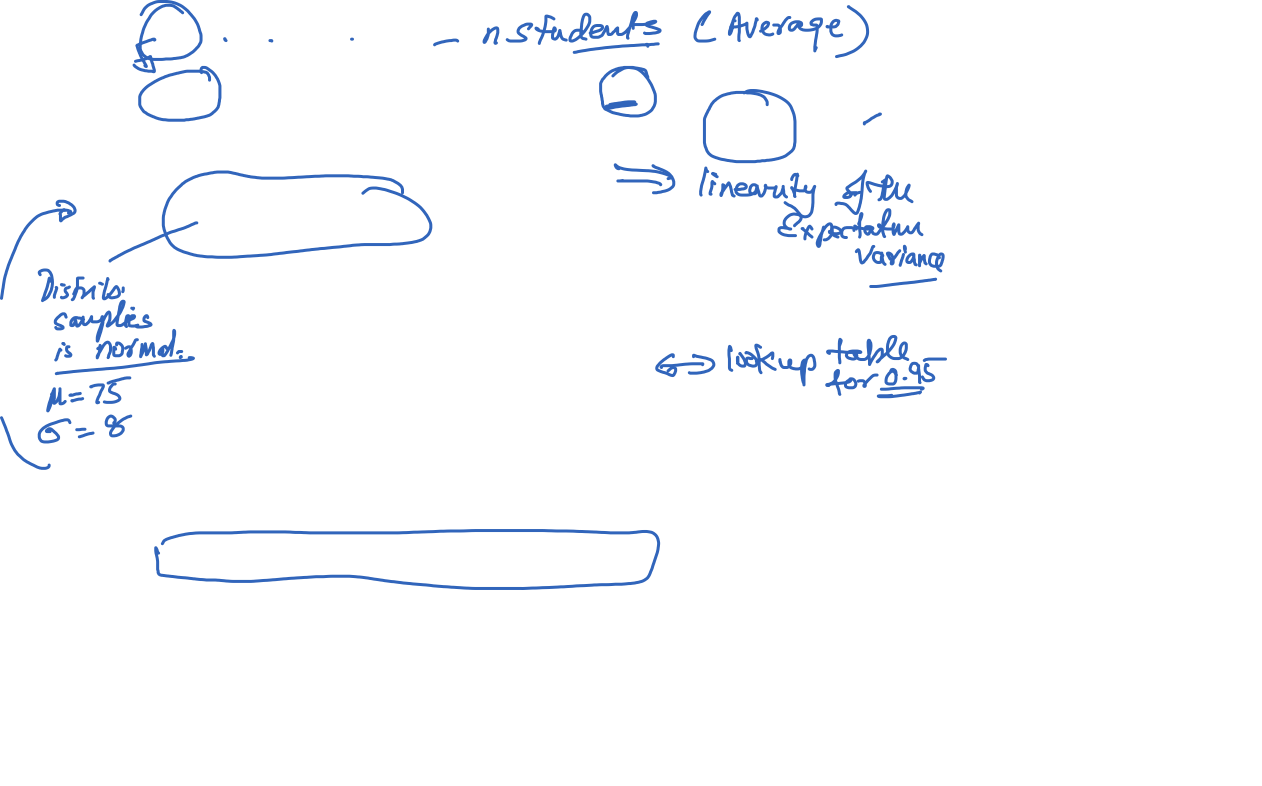 n students (Average)
linearity of the
Expectation
variance
Distrib.
samples
is normal.
μ = 75
σ = 8
lookup table
for 0.95